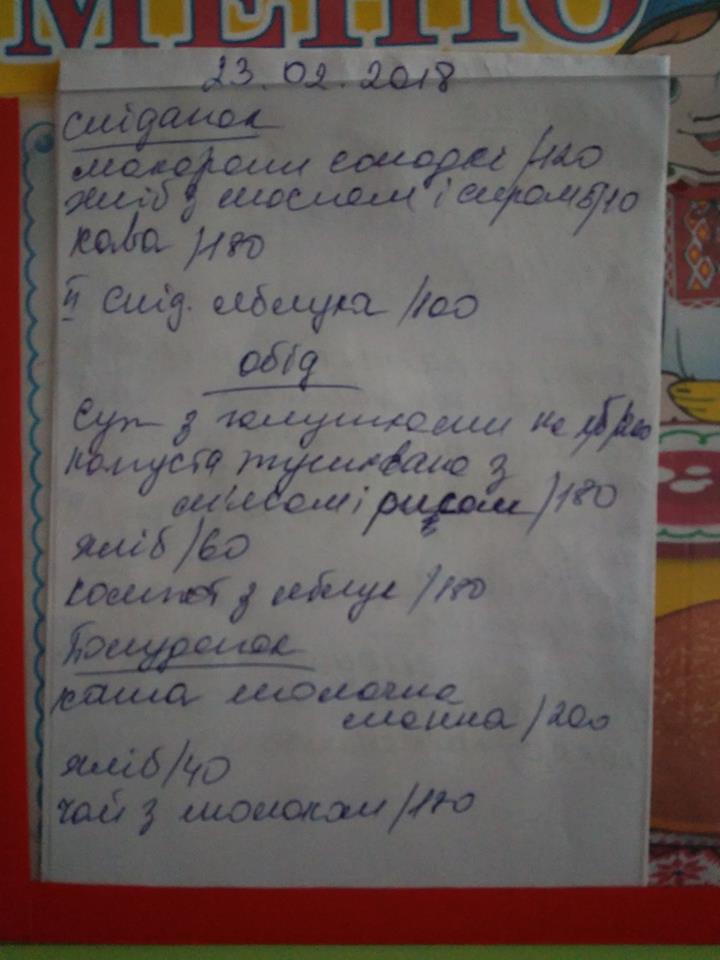 МЕНЮ
23.02.2018
Сніданок
макарони солодкі /120
хліб з маслом і сиром
кава /180
II снід. яблука /100
обід
Суп з галушками на
капуста тушкована з
м'ясом і рисом /180
хліб /60
компот з яблук /180
Полуденок
каша молочна
манна /200
хліб /40
чай з молоком /180